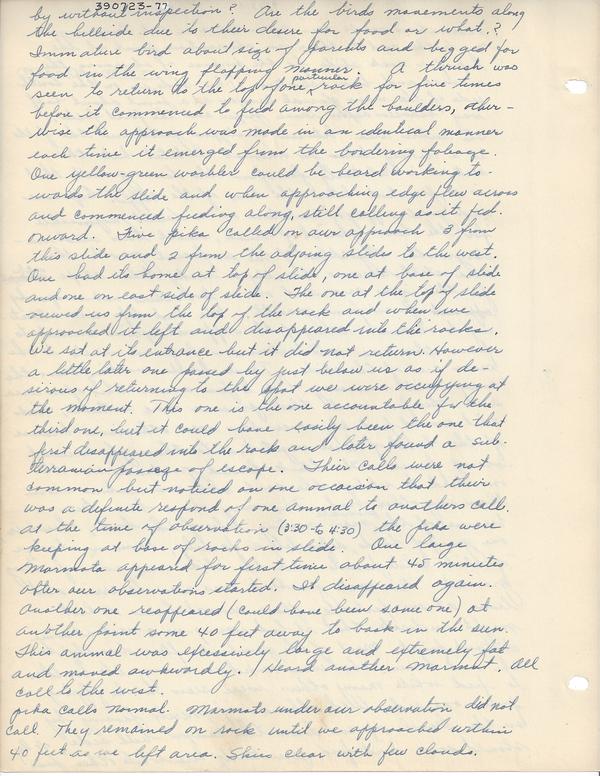 390723-77
by without inspection? Are the birds movements along
the hillside due to their desire for food or what.?
Immature bird about size of parents and begged for
food in the wing flapping manner. A thrush was
seen to return to the top of one particular rock for five times
before it commenced to feed among the boulders, other-
wise the approach was made in an identical manner
each time it emerged from the bordering foliage.
One yellow-green warbler could be heard working to-
wards the slide and when approaching edge flew across
and commenced feeding along, still calling as it fed.
onward. Five pika called on our approach 3 from
this slide and 2 from the adjoing slides to the west.
One had its home at top of slide, one at base of slide
and one on east side of slide. The one at the top of slide
viewed us from the top of the rock and when we
approached it left and disappeared into the rocks.
We sat at its entrance but it did not return. However
a little later one passed by just below us as if de-
sirous of returning to the spot we were occupying at
the moment. This one is the one accountable for the
third one, but it could have easily been the one that
first disappeared into the rock and later found a sub-
terranian passage of escape. Their calls were not
common but noticed on one occasion that their
was a definite respond of one animal to anothers call.
At the time of observation (3:30-to 4:30) the pika were
keeping at base of rocks in slide. One large
Marmota appeared for first time about 45 minutes
after our observations started. It disappeared again.
Another one reappeared (could have been same one) at
another point some 40 feet away to bask in the sun.
This animal was excessively large and extremely fat
and moved awkwardly. Heard another Marmot. All
call to the west.
pika calls normal. Marmots under our observation did not
call. They remained on rock until we approached within
40 feet as we left area. Skies clear with few clouds.